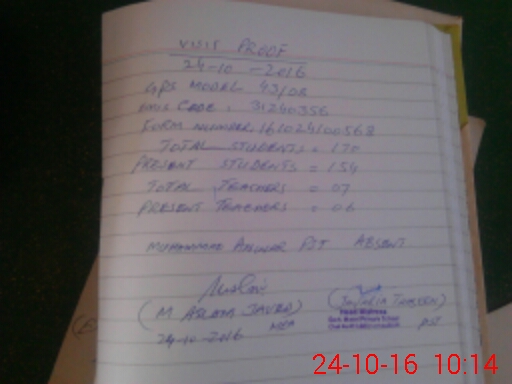 VISIT PROOF
24-10-2016
GPS MODEL 43/08
EMIS CODE. 31240356
FORM NUMBER. 161024100568
TOTAL STUDENTS = 170
PRESENT STUDENTS = 154
TOTAL TEACHERS = 07
PRESENT TEACHERS = 06
MUHAMMAD ANWAR PST ABSENT
(M ASLAM JAVED) MEA
24-10-2016
Head Mistress
Govt. Model Primary School
PST
24-10-16 10:14